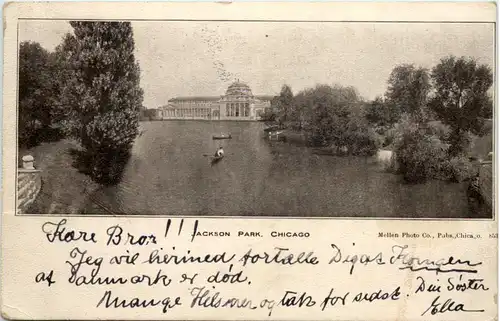 JACKSON PARK, CHICAGO
Mellen Photo Co., Pubs., Chicago.
Kære Bror!!!
Jeg vil hermed fortælle Dig at Kongen
af Danmark er død.
Mange Hilsner og tak for sidst. Din Søster
Ella